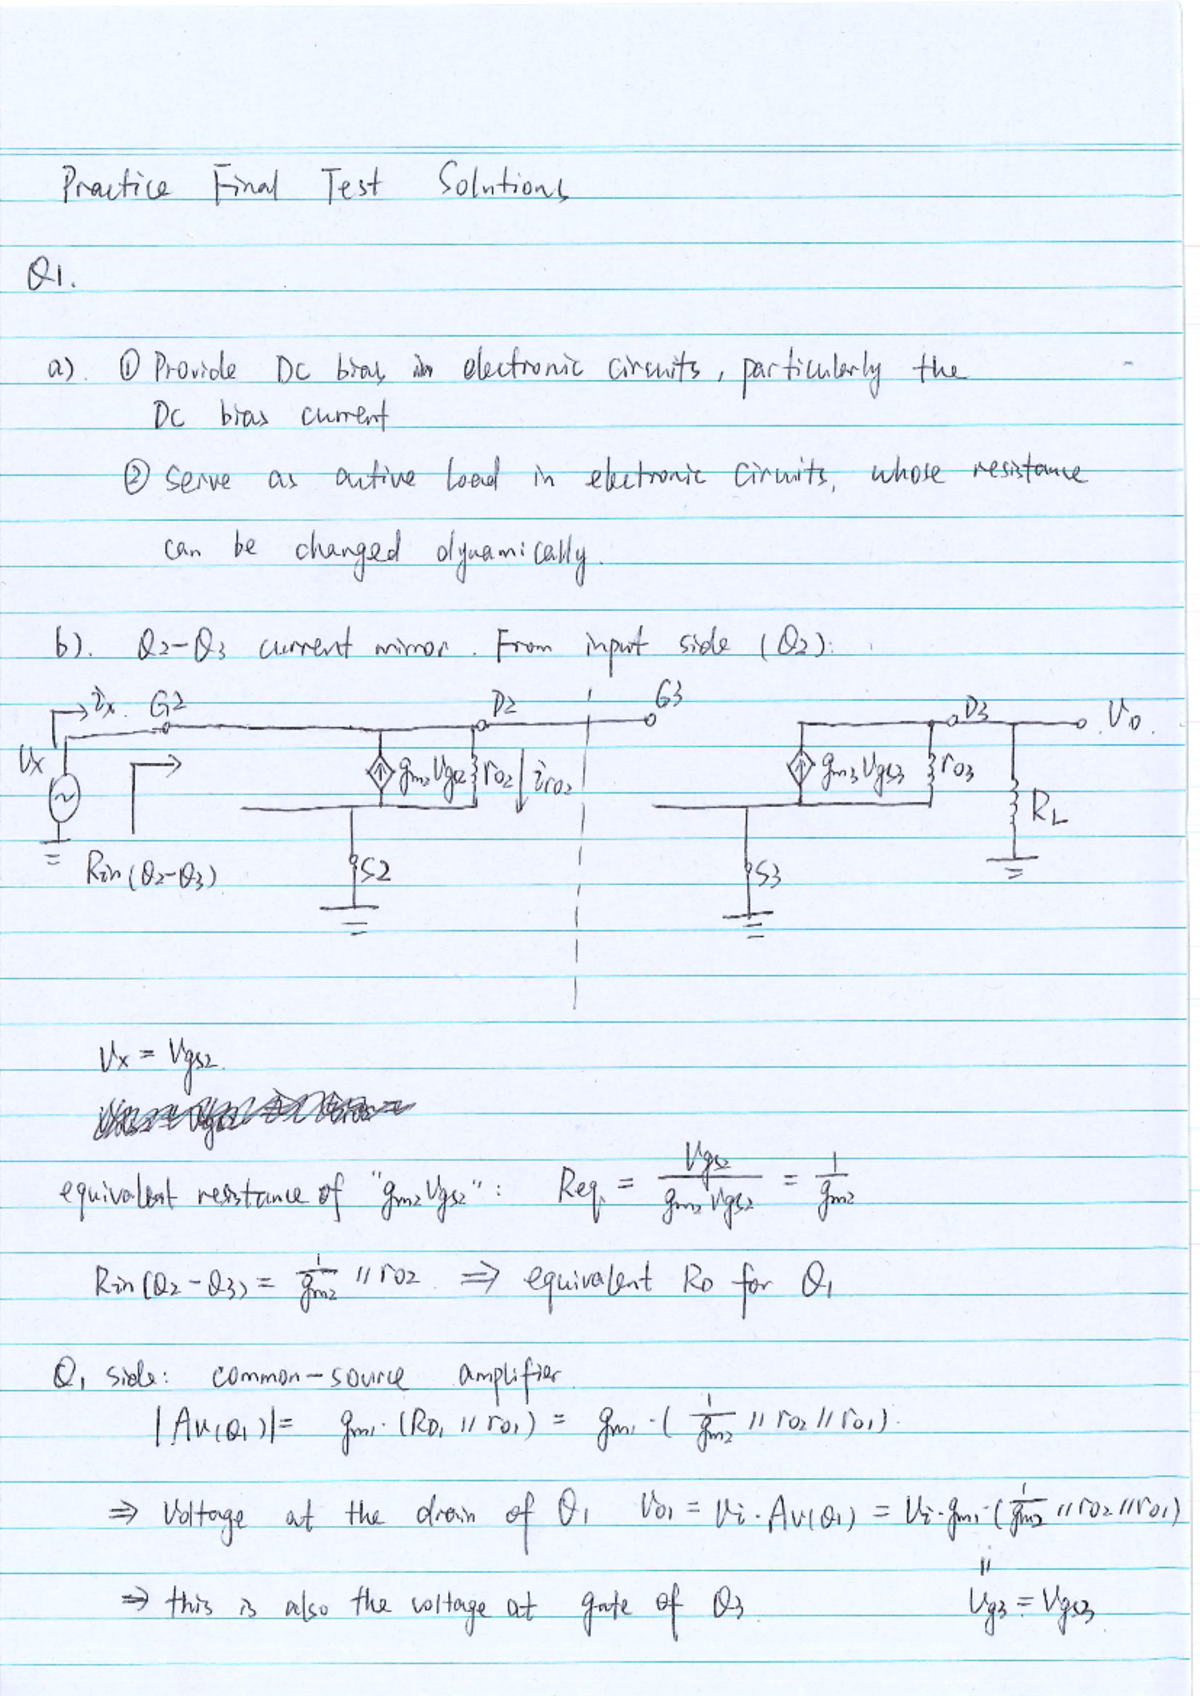 Practice Final Test Solutions
Q1.
a). ① Provide DC bias in electronic circuits, particularly the
DC bias current
② Serve as active load in electronic circuits, whose resistance
can be changed dynamically.
b). Q2-Q3 current mirror. From input side (Q2):
ix G2 D2 G3 D3 Vo
Vx gm2Vgs2 ro2 iro2 gm3Vgs3 ro3 RL
Rin(Q2-Q3) S2 S3
Vx = Vgs2
equivalent resistance of "gm2Vgs2": Req. = Vgs2 / gm2Vgs2 = 1 / gm2
Rin(Q2-Q3) = 1/gm2 // ro2 ⇒ equivalent RD for Q1
Q1 side: common-source amplifier.
|Av(Q1)| = gm1·(RD1 // ro1) = gm1·(1/gm2 // ro2 // ro1).
⇒ Voltage at the drain of Q1 Vo1 = Vi·Av(Q1) = Vi·gm1·(1/gm2 // ro2 // ro1)
⇒ this is also the voltage at gate of Q3 Vg3 = Vgs3